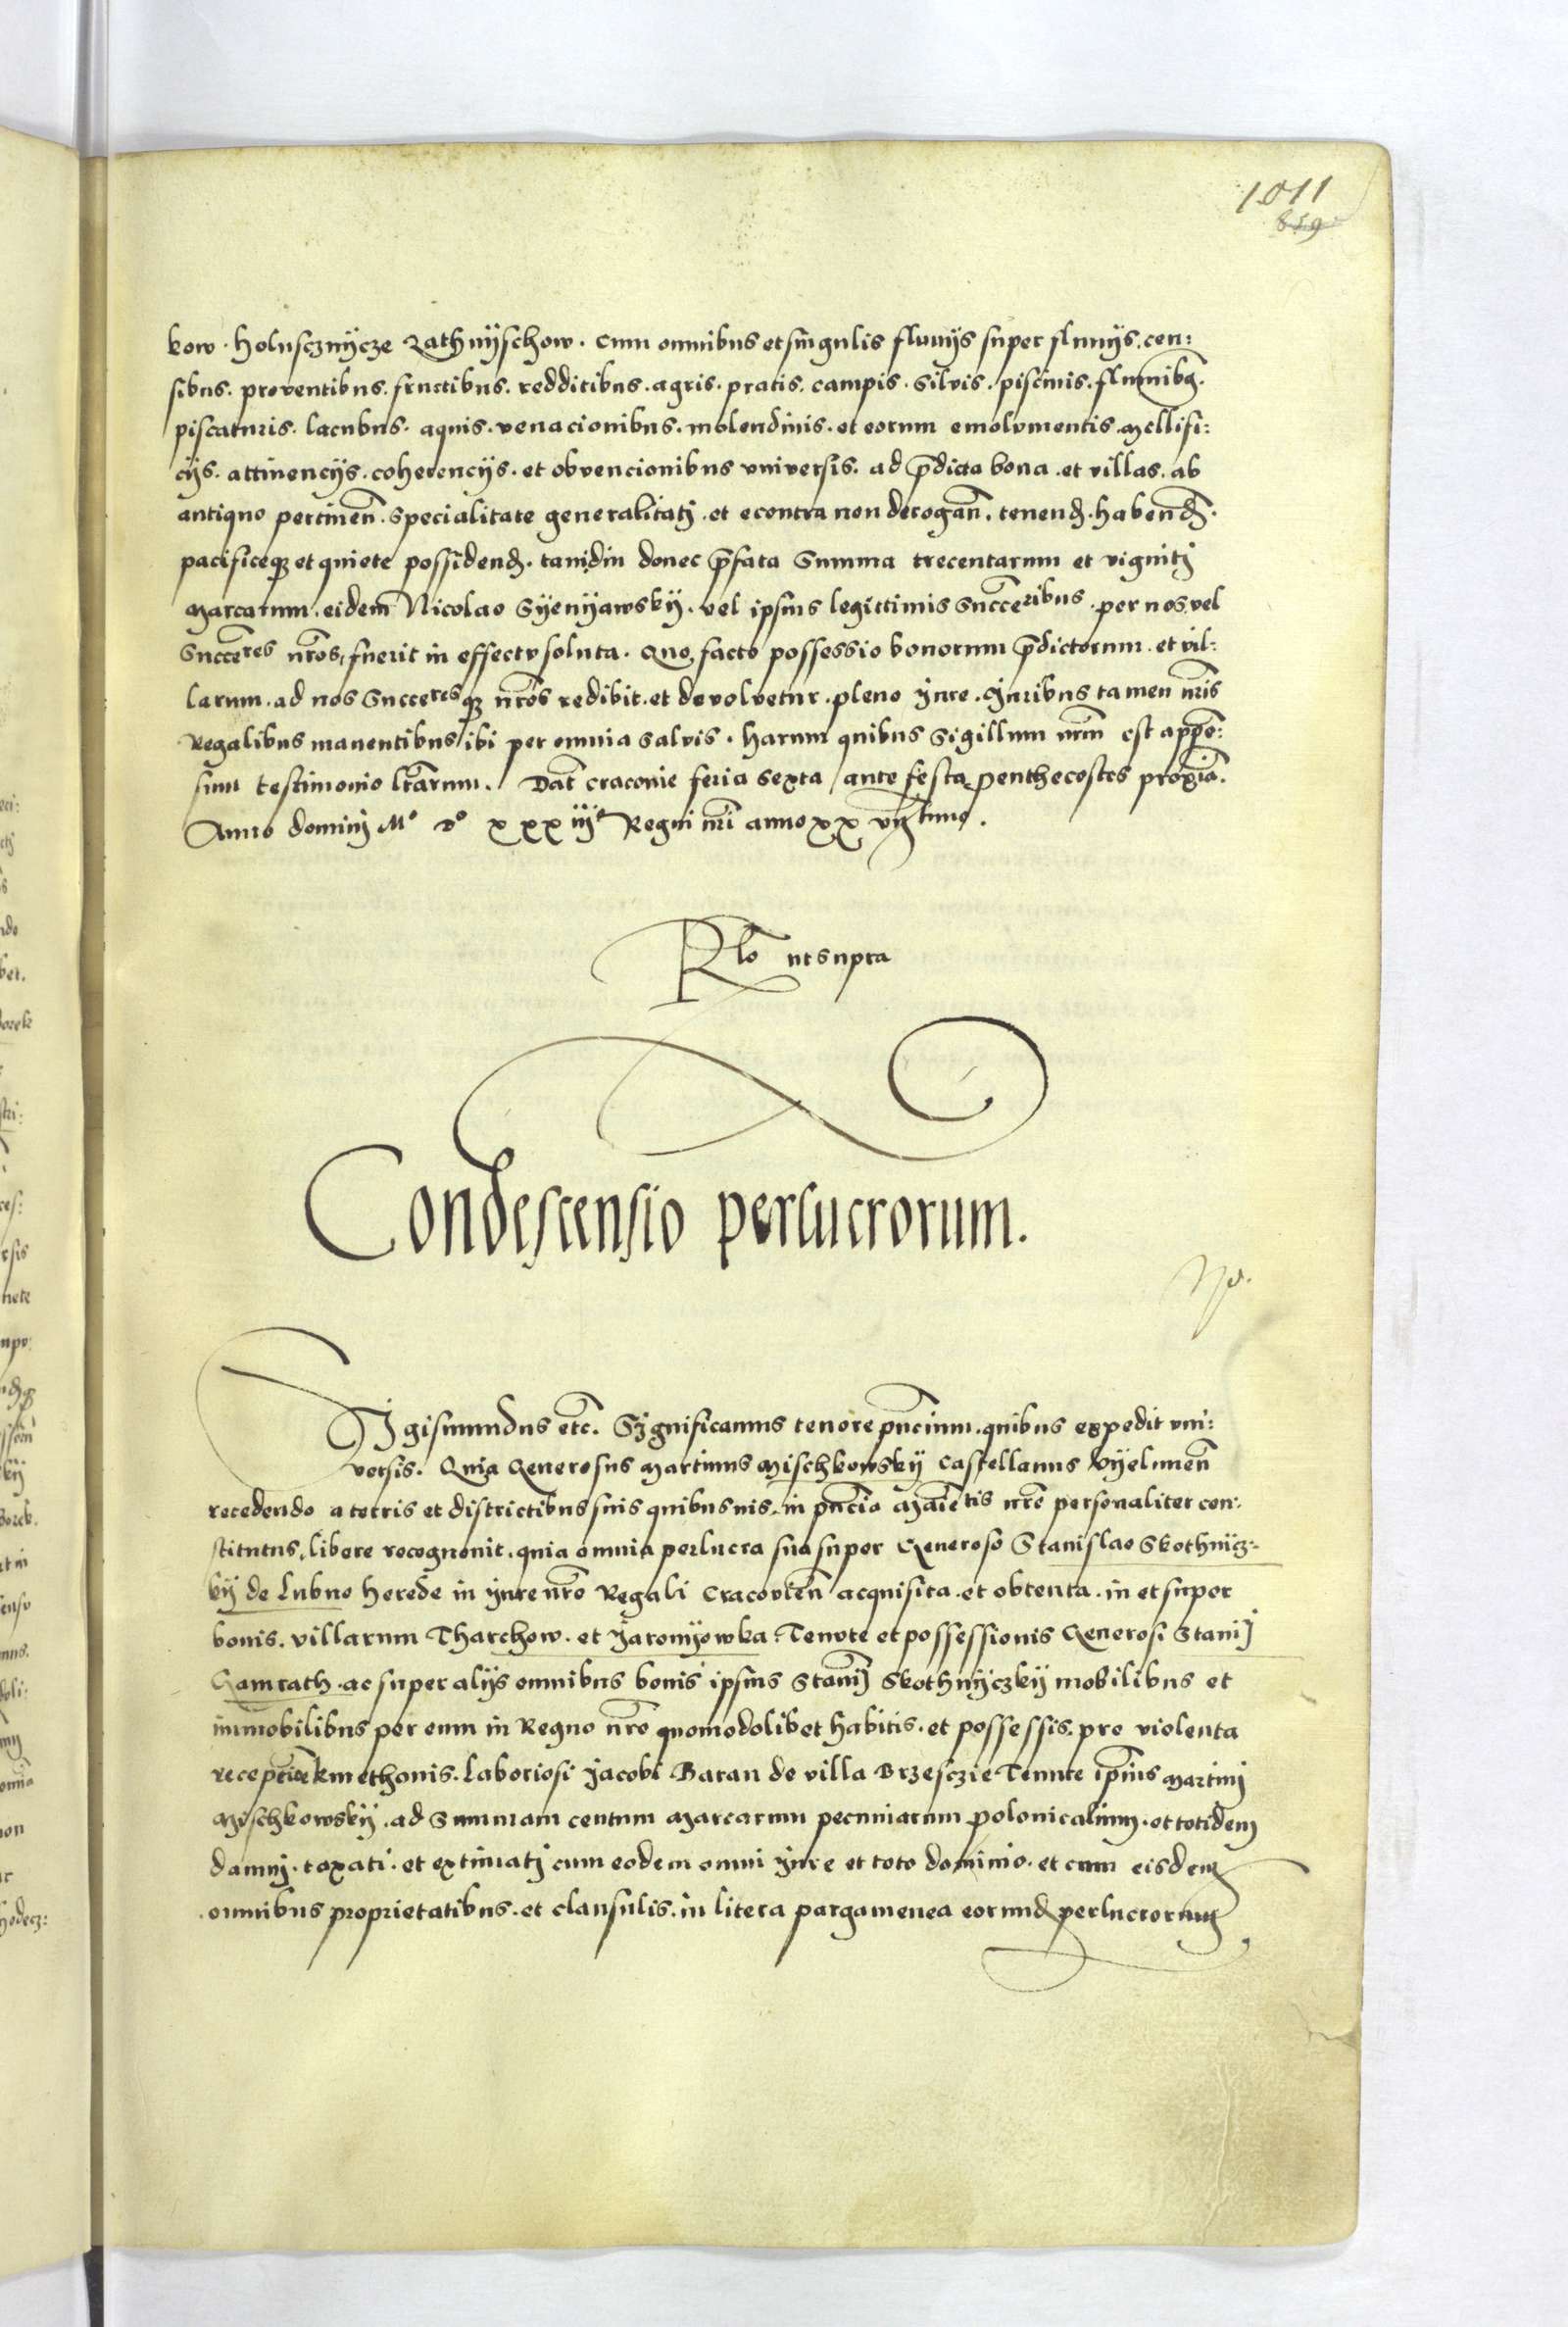 1011
859
kow . Holuscznÿcze Rathnÿschow . cum omnibus et singulis fluvÿs super fluvÿs . cen:
sibus . proventibus . fructibus . redditibus . agris . pratis . campis . silvis . piscinis . fluminibꝫ .
piscaturis . lacubus . aquis . venacionibus . molendinis . et eorum emolumentis . Mellifi:
cÿs . attinencÿs . coherencÿs . et obvencionibus universis . ad p̄dicta bona . et villas . ab
antiquo pertineñ . specialitate generalitatj . et econtra non derogañ . tenenđ . habenđ .
pacificeqꝫ et quiete possidenđ . tamdiu donec p̄fata Summa trecentarum et vigintj
Marcarum . eidem Nicolao Sÿenÿawskÿ . vel ipsius legittimis Succe͞ribus . per nos vel
Succe͞res nr̄os , fuerit in effectu soluta . Quo facto possessio bonorum p̄dictorum . et vil:
larum . ad nos Succeresqꝫ nr̄os redibit . et devolvetur . pleno jure . Juribus tamen nr̄is
Regalibus manentibus ibi per omnia salvis . Harum quibus Sigillum nr̄m est appen̄:
sum testimonio lr̄arum . Dat̄ cracovie feria sexta ante festa Penthecostes prox̄ia .
Anno dominj Mº Dº xxxiijº Regni nr̄i anno xx vijtimo .
Rlo ut supra
Condescensio perlucrorum.
Sigismundus etc̄ . Significamus tenore pn̄cium . quibus expedit uni:
versis . Quia Generosus Martinus Mischkowskÿ Castellanus Vÿeluneñ
recedendo a terris et districtibus suis quibusvis , in pn̄cia Maie͞tis nr̄e personaliter con:
stitutus , libere recognovit . quia omnia perlucra sua super Generoso Stanislao Skothnicz:
kÿ de Lubno herede in jure nr̄o Regali Cracovieñ acquisita . et obtenta . in et super
bonis . villarum Tharchow . et Jaromÿowka . Tenute et possessionis Generosi Stan̄ij
Gamrath . ac super alÿs omnibus bonis ipsius Stan̄ij Skothnÿczkÿ mobilibus et
immobilibus per eum in Regno nr̄o quomodolibet habitis . et possessis . pro violenta
recepc̄ione kmethonis . Laboriosi Jacobi Baran de villa Brzesczie Tenute ip̄ius Martinj
Mischkowskÿ . ad Summam centum Marcarum pecuniarum polonicalium . et totidem
damnj . taxati . et extimatj cum eodem omni jure et toto dominio . et cum eisdem
omnibus proprietatibus . et clausulis . in litera pargamenea eorunđ perlucrorum